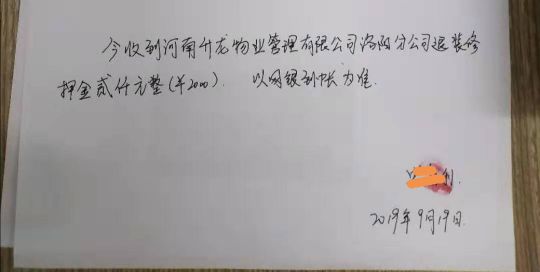 今收到河南升龙物业管理有限公司洛阳分公司退装修
押金贰仟元整(¥2000). 以网银到帐为准.
2019年9月19日.